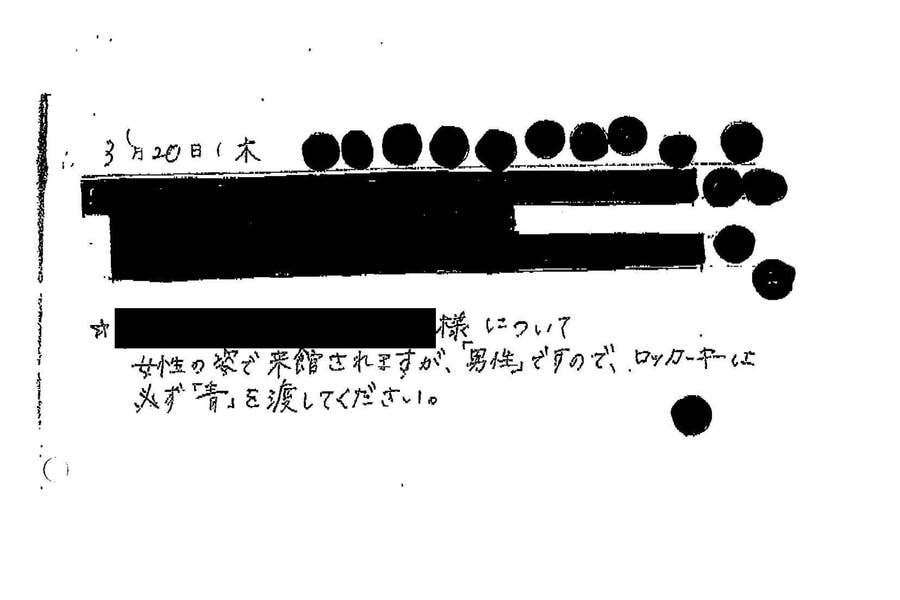 3月20日(木
☆
様 について
女性の姿で来館されますが、「男性」ですので、ロッカーキーは
必ず「青」を渡してください。